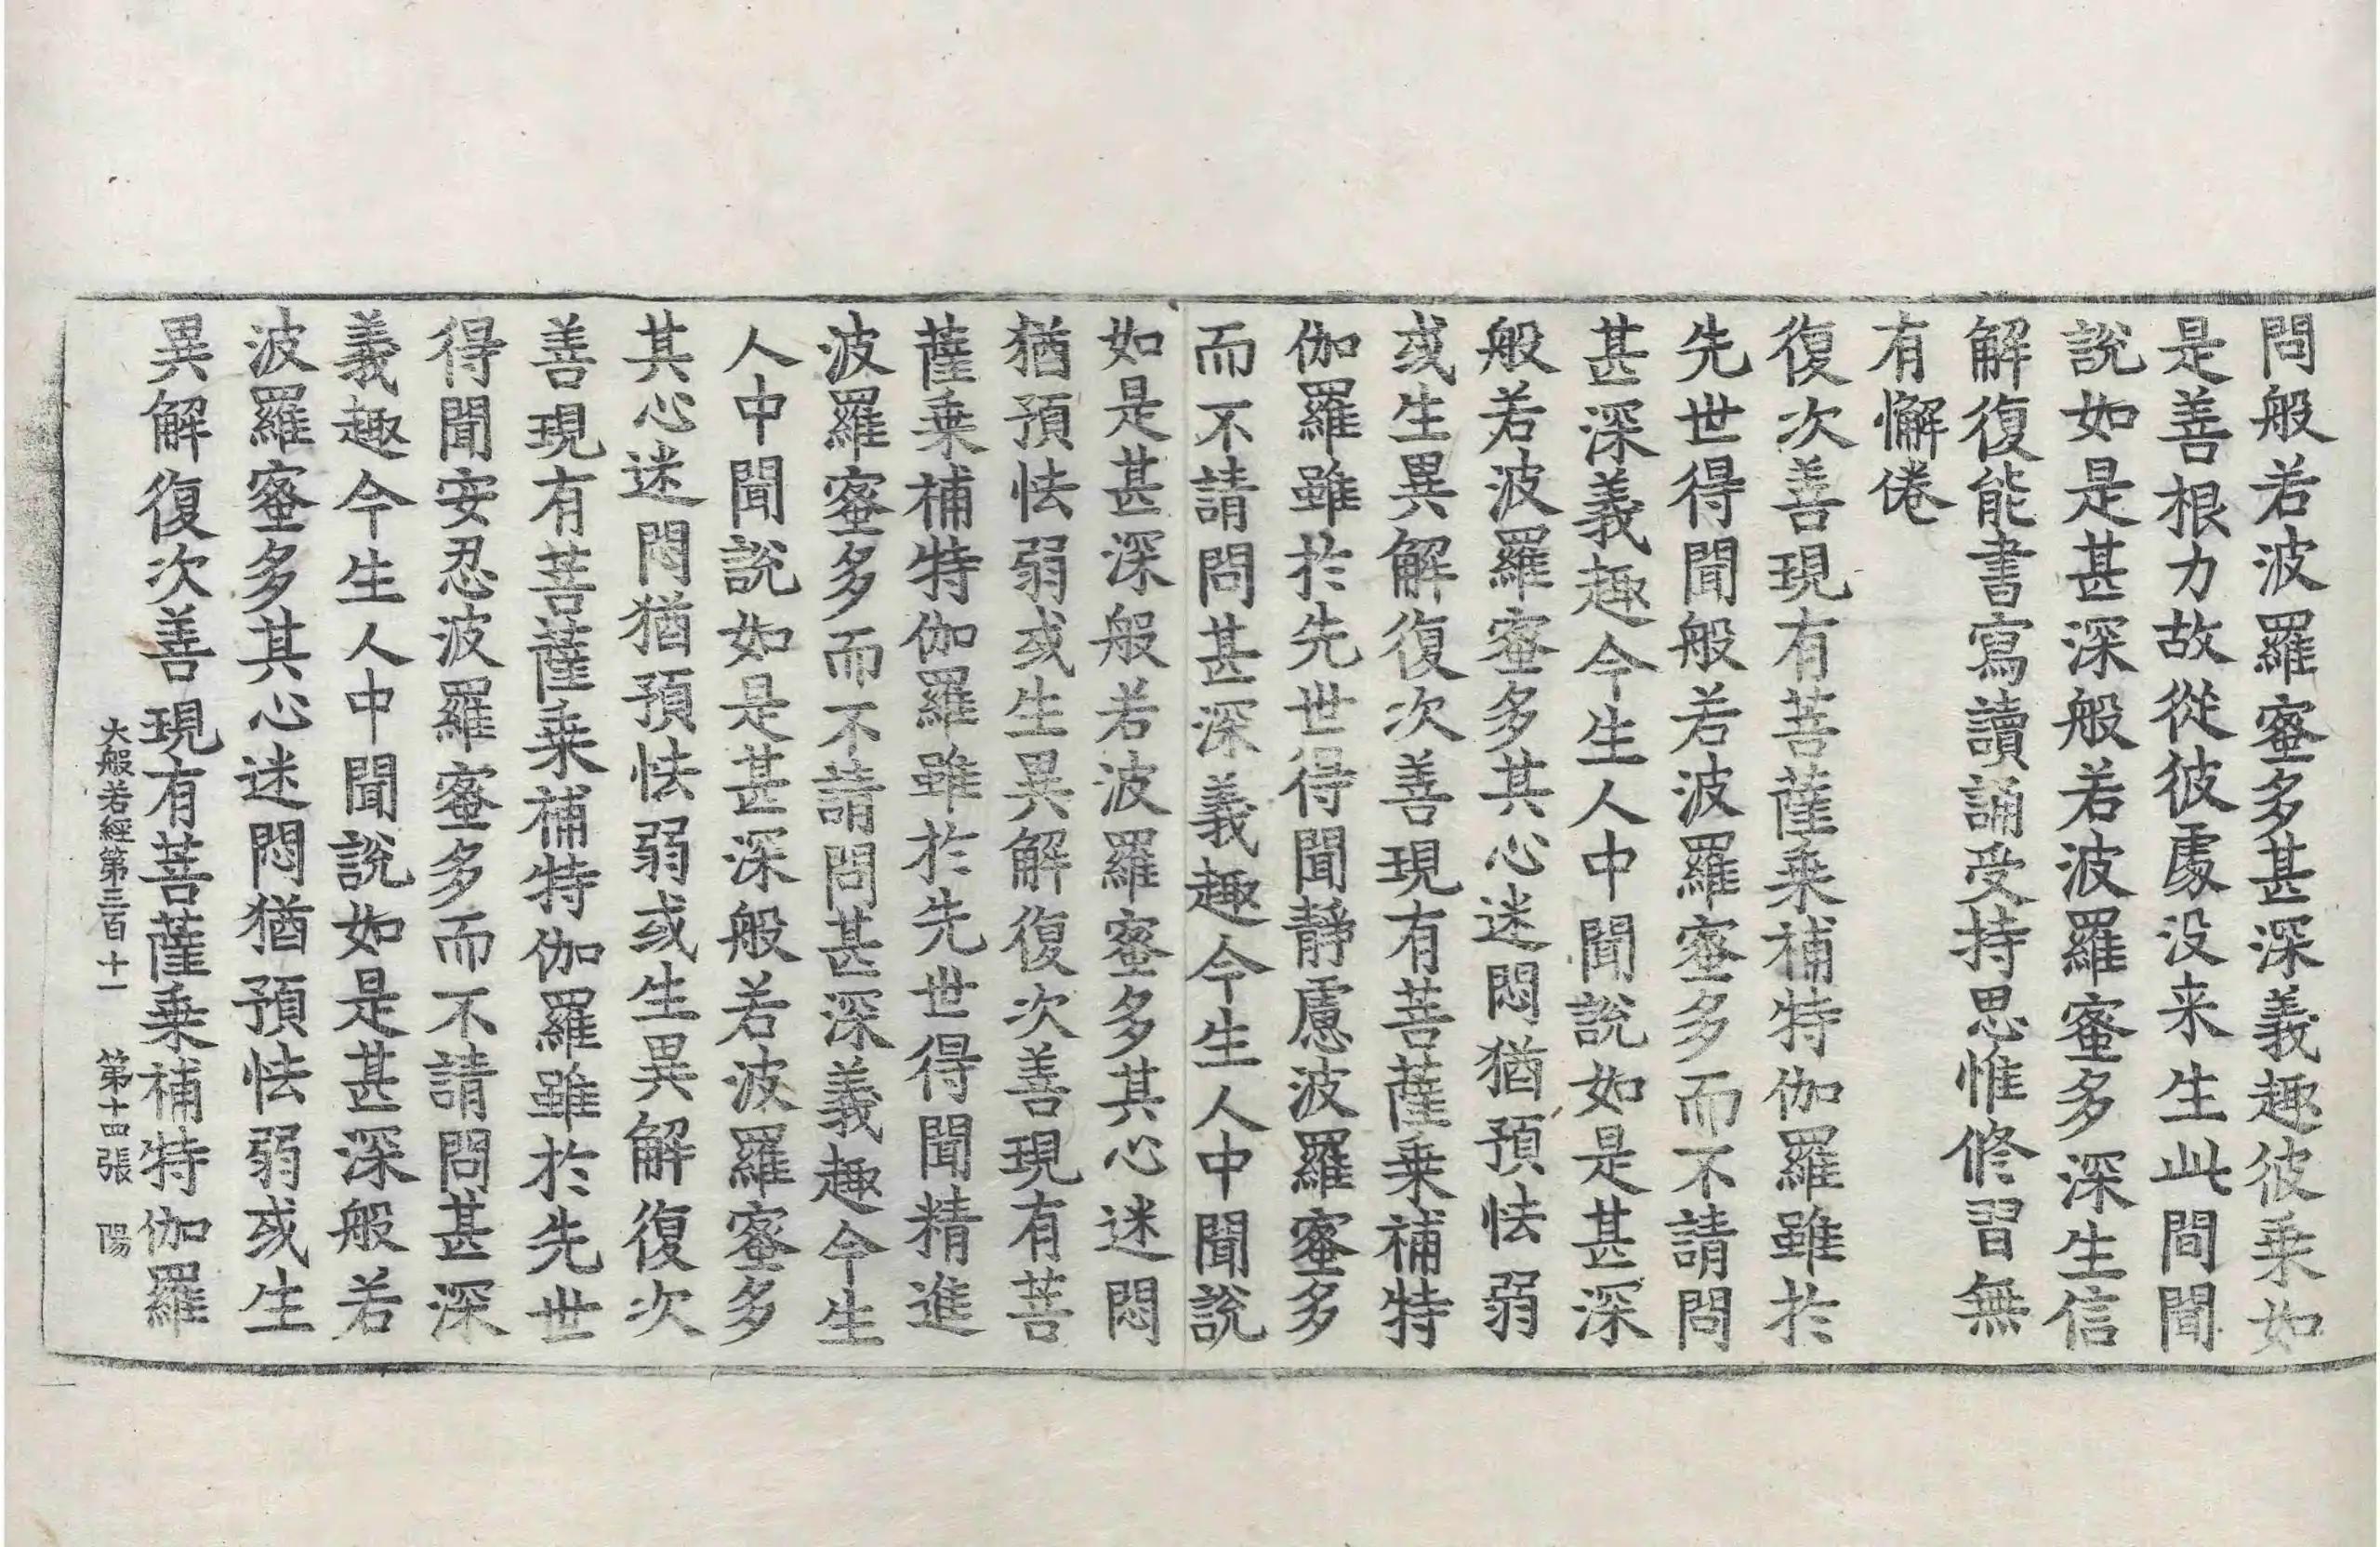 問般若波羅蜜多甚深義趣彼乗如
是善根力故從彼處没来生此間聞
說如是甚深般若波羅蜜多深生信
解復能書寫讀誦受持思惟修習無
有懈倦
復次善現有菩薩乗補特伽羅雖於
先世得聞般若波羅蜜多而不請問
甚深義趣今生人中聞說如是甚深
般若波羅蜜多其心迷悶猶預怯弱
或生異解復次善現有菩薩乗補特
伽羅雖於先世得聞靜慮波羅蜜多
而不請問甚深義趣今生人中聞說
如是甚深般若波羅蜜多其心迷悶
猶預怯弱或生異解復次善現有菩
薩乗補特伽羅雖於先世得聞精進
波羅蜜多而不請問甚深義趣今生
人中聞說如是甚深般若波羅蜜多
其心迷悶猶預怯弱或生異解復次
善現有菩薩乗補特伽羅雖於先世
得聞安忍波羅蜜多而不請問甚深
義趣今生人中聞說如是甚深般若
波羅蜜多其心迷悶猶預怯弱或生
異解復次善現有菩薩乗補特伽羅
大般若經第三百十一 第十四張 陽